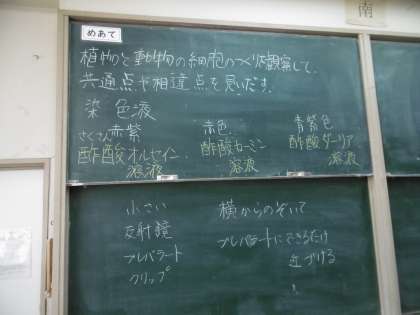 南
めあて
植物と動物の細胞のつくりを観察して、
共通点や相違点を見いだす。
染色液
さくさん 赤紫 赤色 青紫色
酢酸オルセイン 酢酸カーミン 酢酸ダーリア
溶液 溶液 溶液
小さい 横からのぞいて
反射鏡 プレパラートにできるだけ
プレパラート 近づける
クリップ